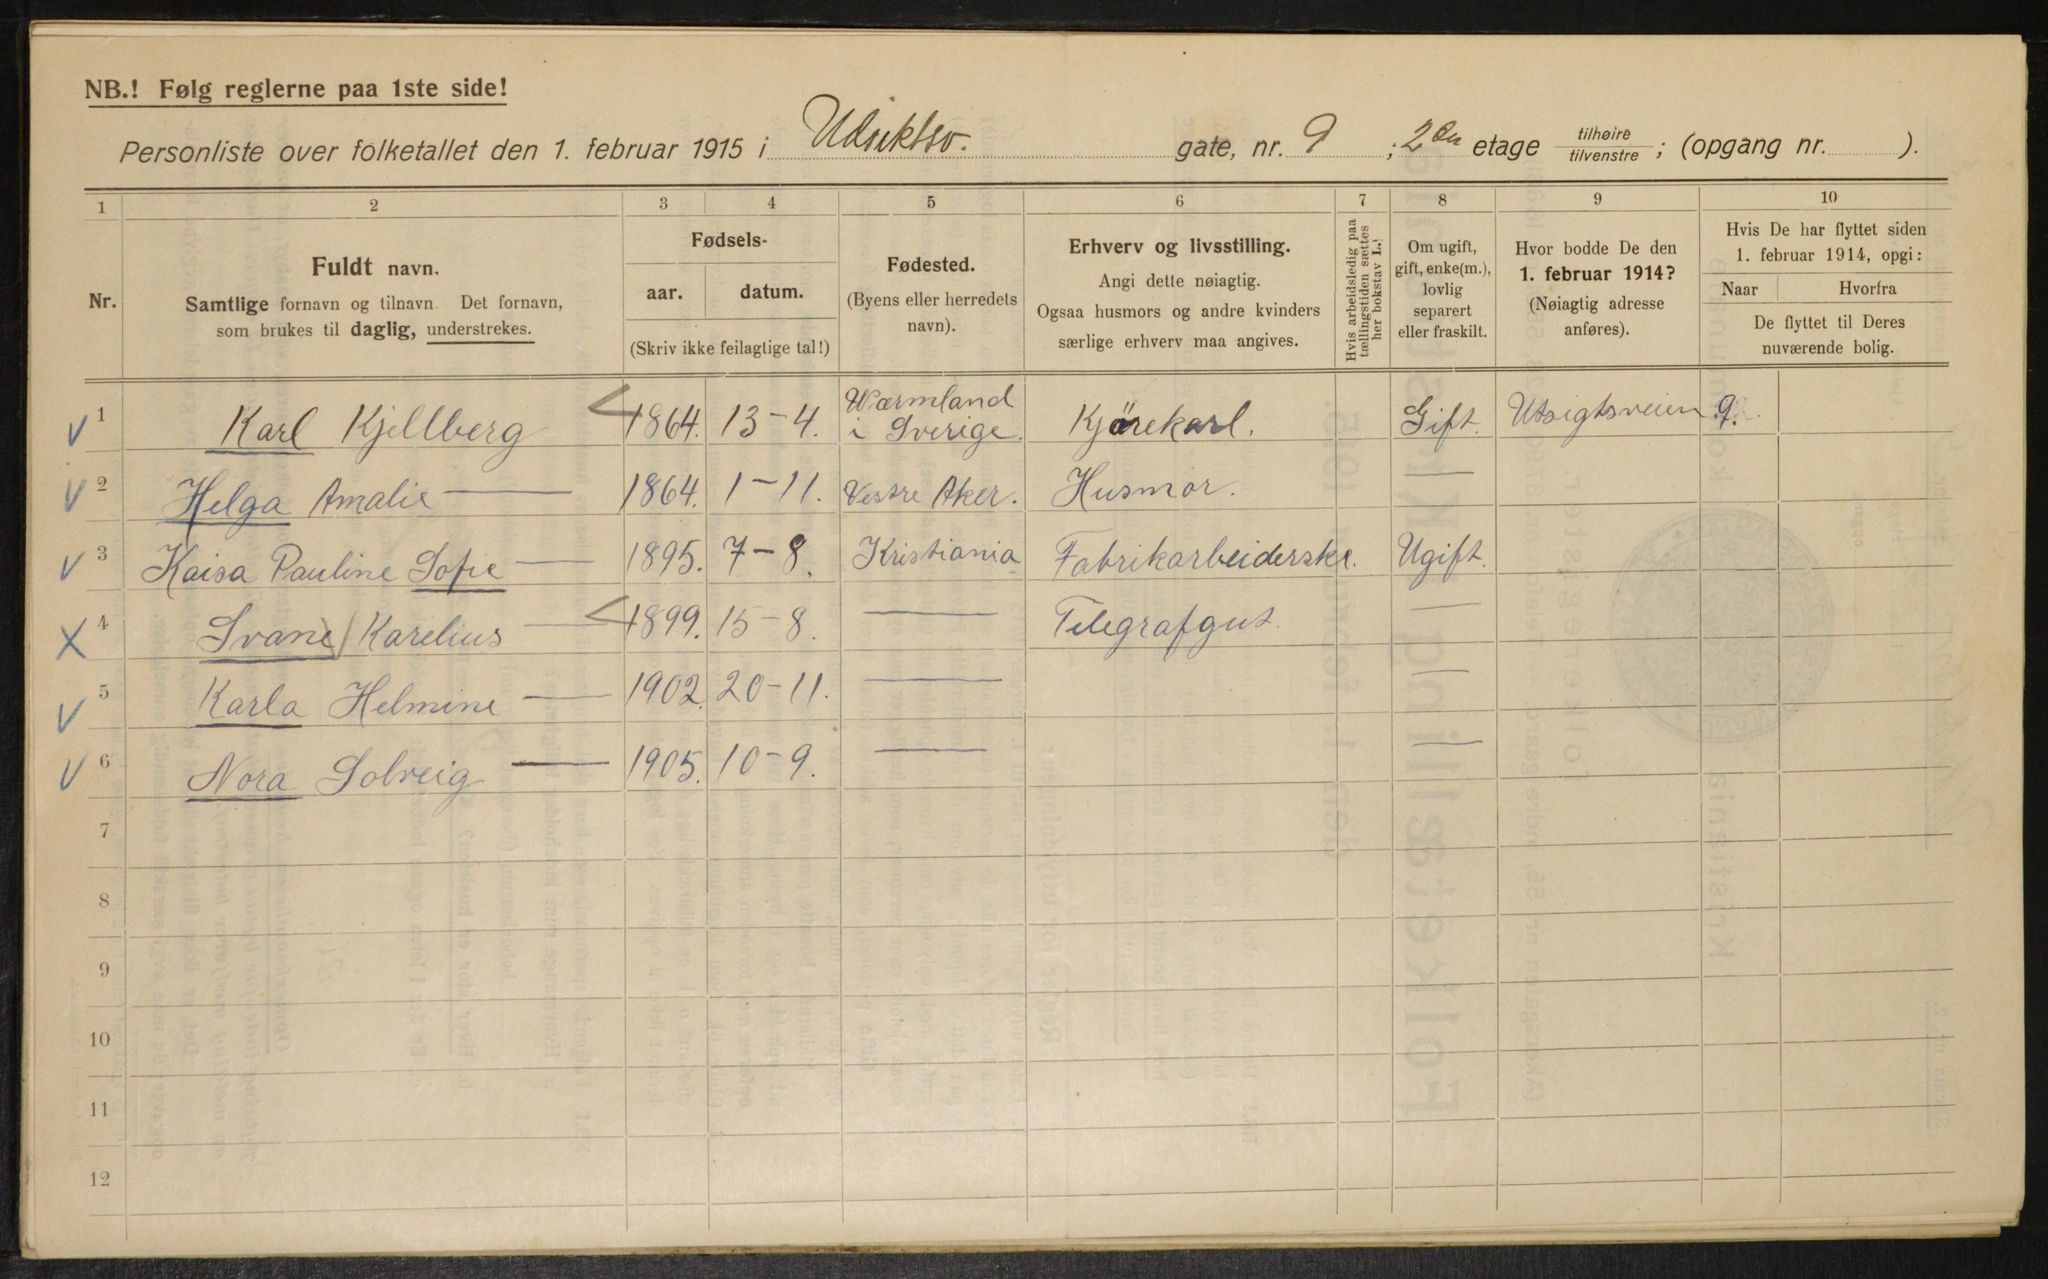 NB.! Følg reglerne paa 1ste side!
Personliste over folketallet den 1. februar 1915 i Udsiktsv. gate, nr. 9 ; 2den etage tilhøire/tilvenstre ; (opgang nr. ).
1 2 3 4 5 6 7 8 9 10
Nr.
Fuldt navn.
Samtlige fornavn og tilnavn. Det fornavn,
som brukes til daglig, understrekes.
Fødsels-
aar. datum.
(Skriv ikke feilagtige tal!)
Fødested.
(Byens eller herredets
navn).
Erhverv og livsstilling.
Angi dette nøiagtig.
Ogsaa husmors og andre kvinders
særlige erhverv maa angives.
Hvis arbeidsledig paa
tællingstiden sættes
her bokstav L.!
Om ugift,
gift, enke(m.),
lovlig
separert
eller fraskilt.
Hvor bodde De den
1. februar 1914?
(Nøiagtig adresse
anføres).
Hvis De har flyttet siden
1. februar 1914, opgi:
Naar Hvorfra
De flyttet til Deres
nuværende bolig.
1 Karl Kjellberg 1864. 13-4. Wærmland i Sverige. Kjörekarl. Gift. Utsigtsveien 9.
2 Helga Amalie — 1864. 1-11. Vestre Aker. Husmor. —
3 Kaisa Pauline Sofie — 1895. 7-8. Kristiania Fabrikarbeiderske. Ugift.
4 Svane Karelius — 1899. 15-8. — Telegrafgut. —
5 Karla Helmine — 1902. 20-11. — —
6 Nora Solveig — 1905. 10-9. — —
7
8
9
10
11
12